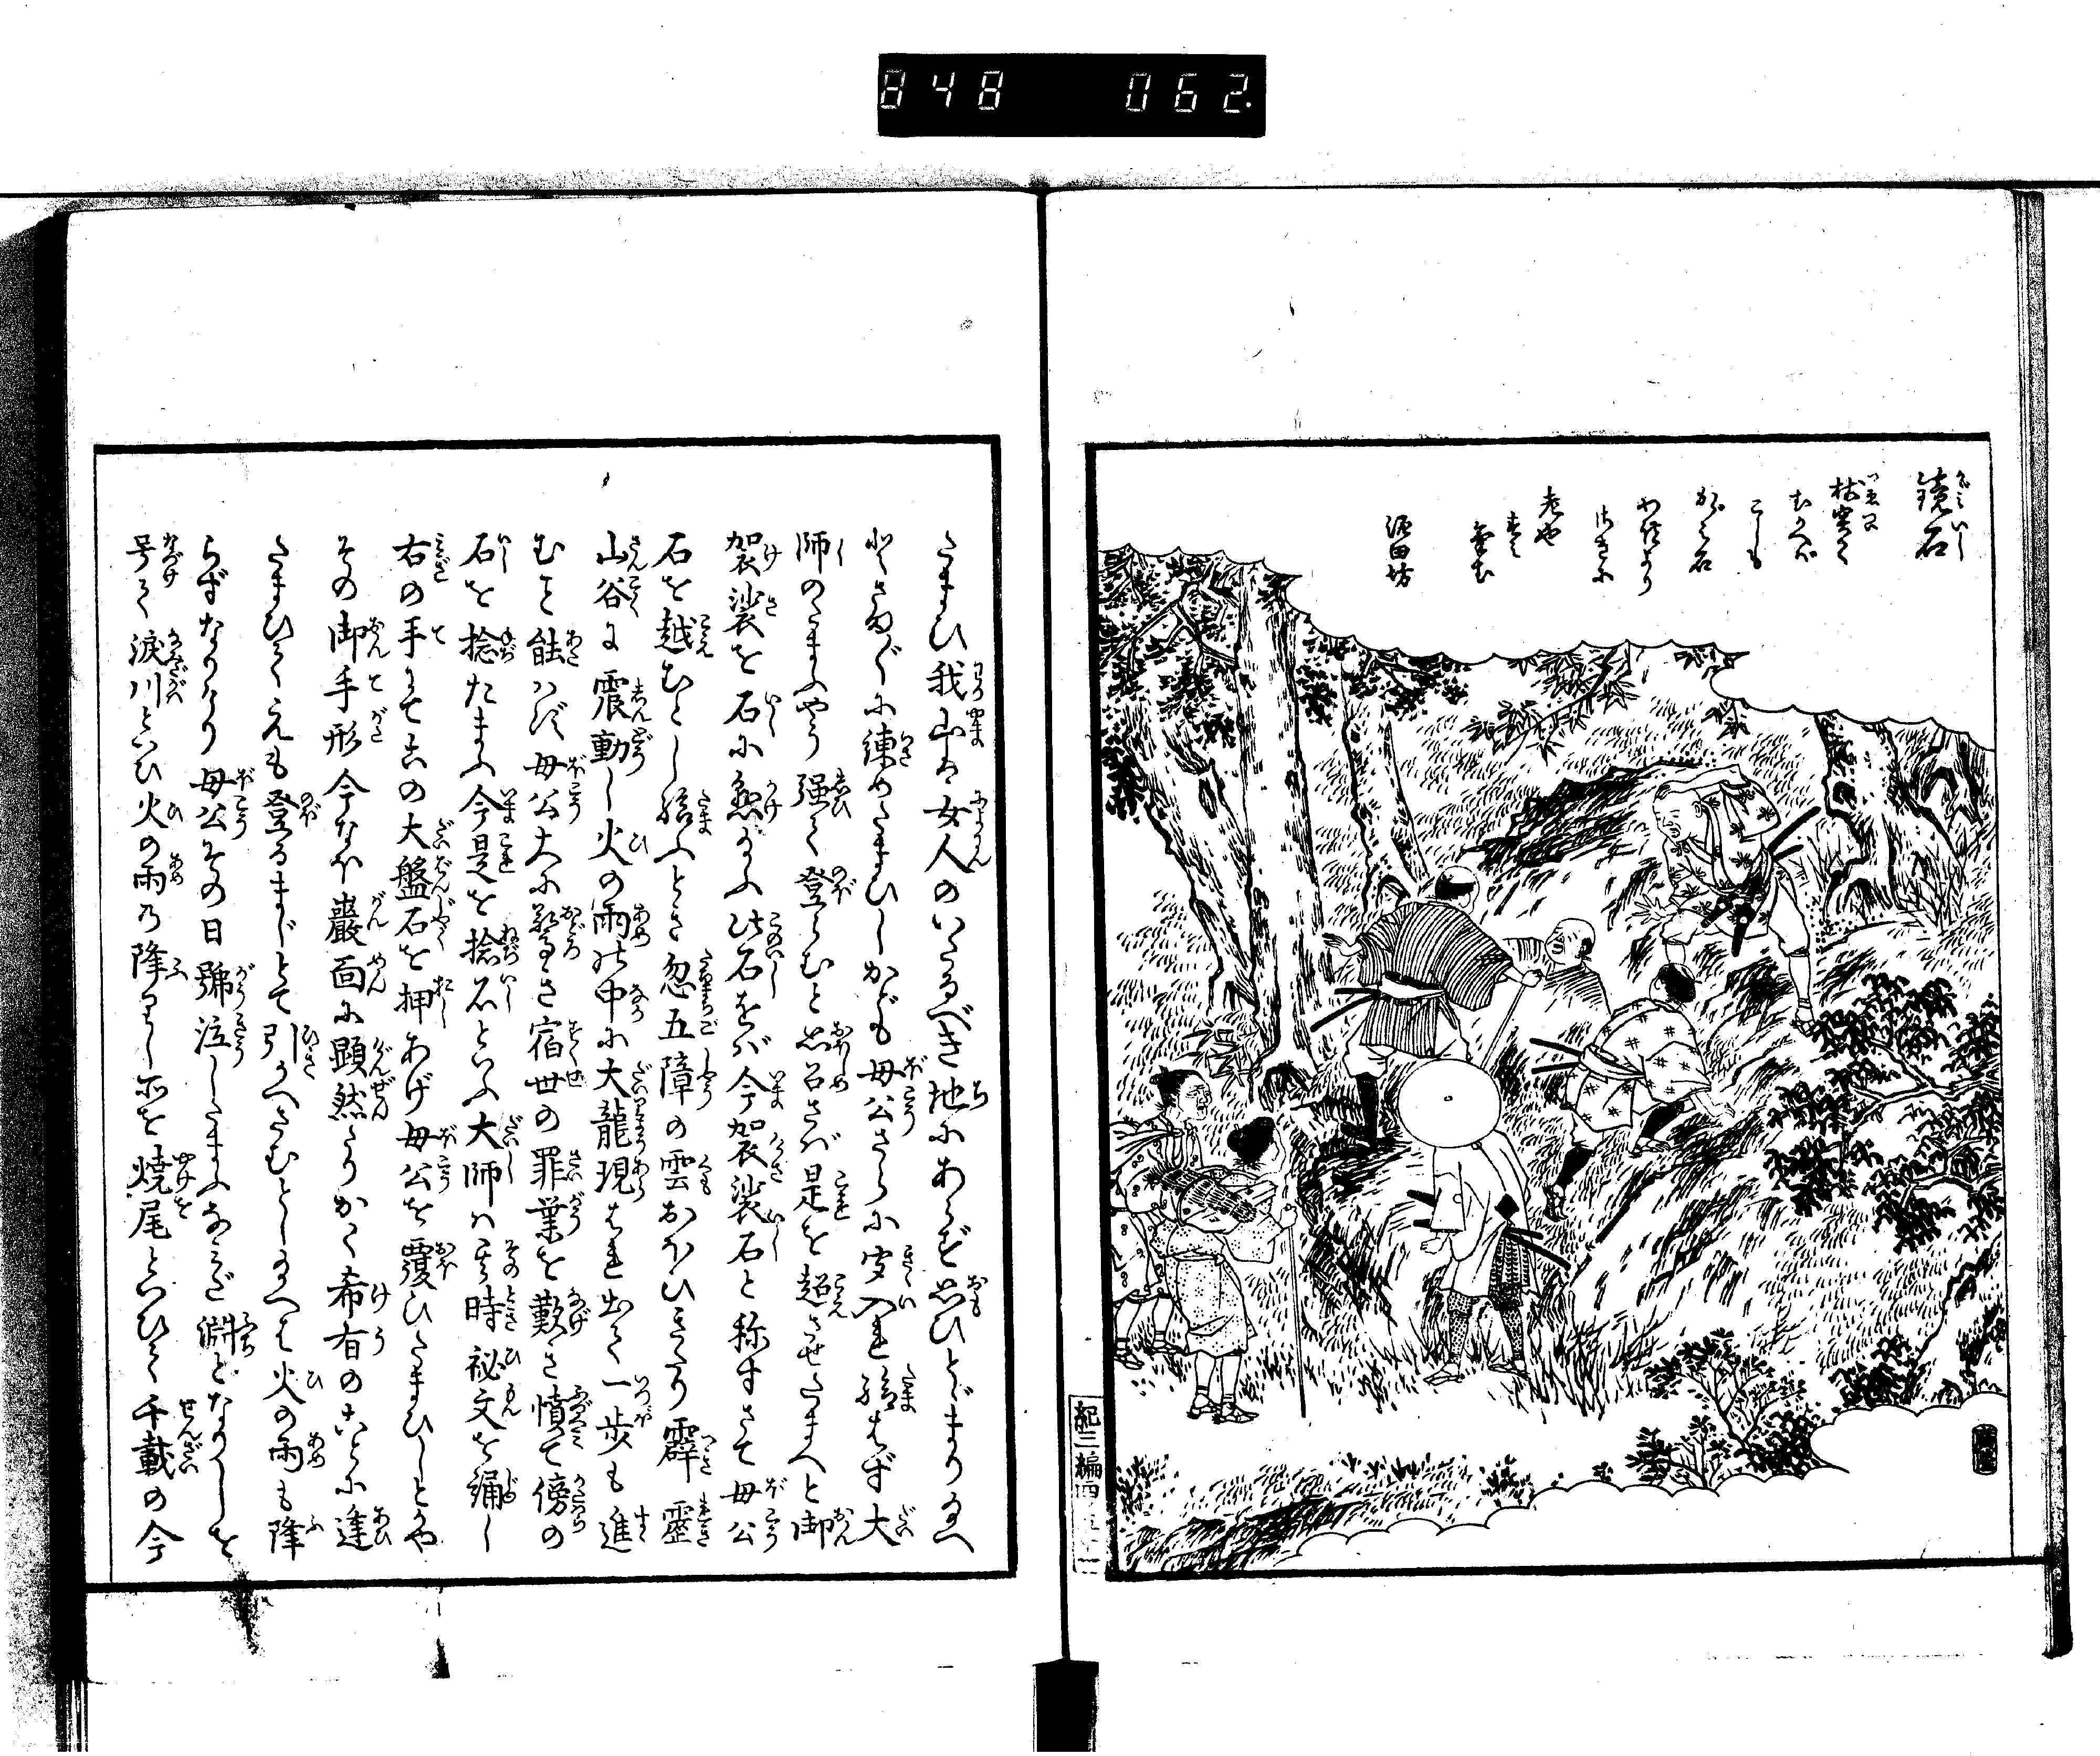 848 062.
鏡石
かゞみいし
杖突て
むかへば
こしも
かゞみ石
老也
沼田坊
紀三編四ノ五十一
たまひ我山は女人のいたるべき地にあらず思ひとゞまりたまへ
とさま〴〵に諫めたまひしかども母公さらに聞入れ給はず大
師のたまふやう強て登らむと思召さば是を超させたまへと御
袈裟を石に懸たまふ此石をば今袈裟石と称すさて母公
石を越むとし給ふとき忽五障の雲おほひきたり霹靂
山谷に震動し火の雨の中に大龍現はれ出て一歩も進
むこと能ハず母公大に驚き宿世の罪業を歎き憤て傍の
石を捻たまふ今是を捻石といふ大師ハ其時秘文を誦し
右の手にて此の大盤石を押あげ母公を覆ひたまひしとかや
その御手形今なほ巌面に顕然たりかく希有のことに逢
たまひてえも登るまじとて引かへさむとしたまへば火の雨も降
らずなりけり母公その日號泣したまふなみだ淵となりしを
号て涙川といひ火の雨の降りし所を焼尾といひて千載の今